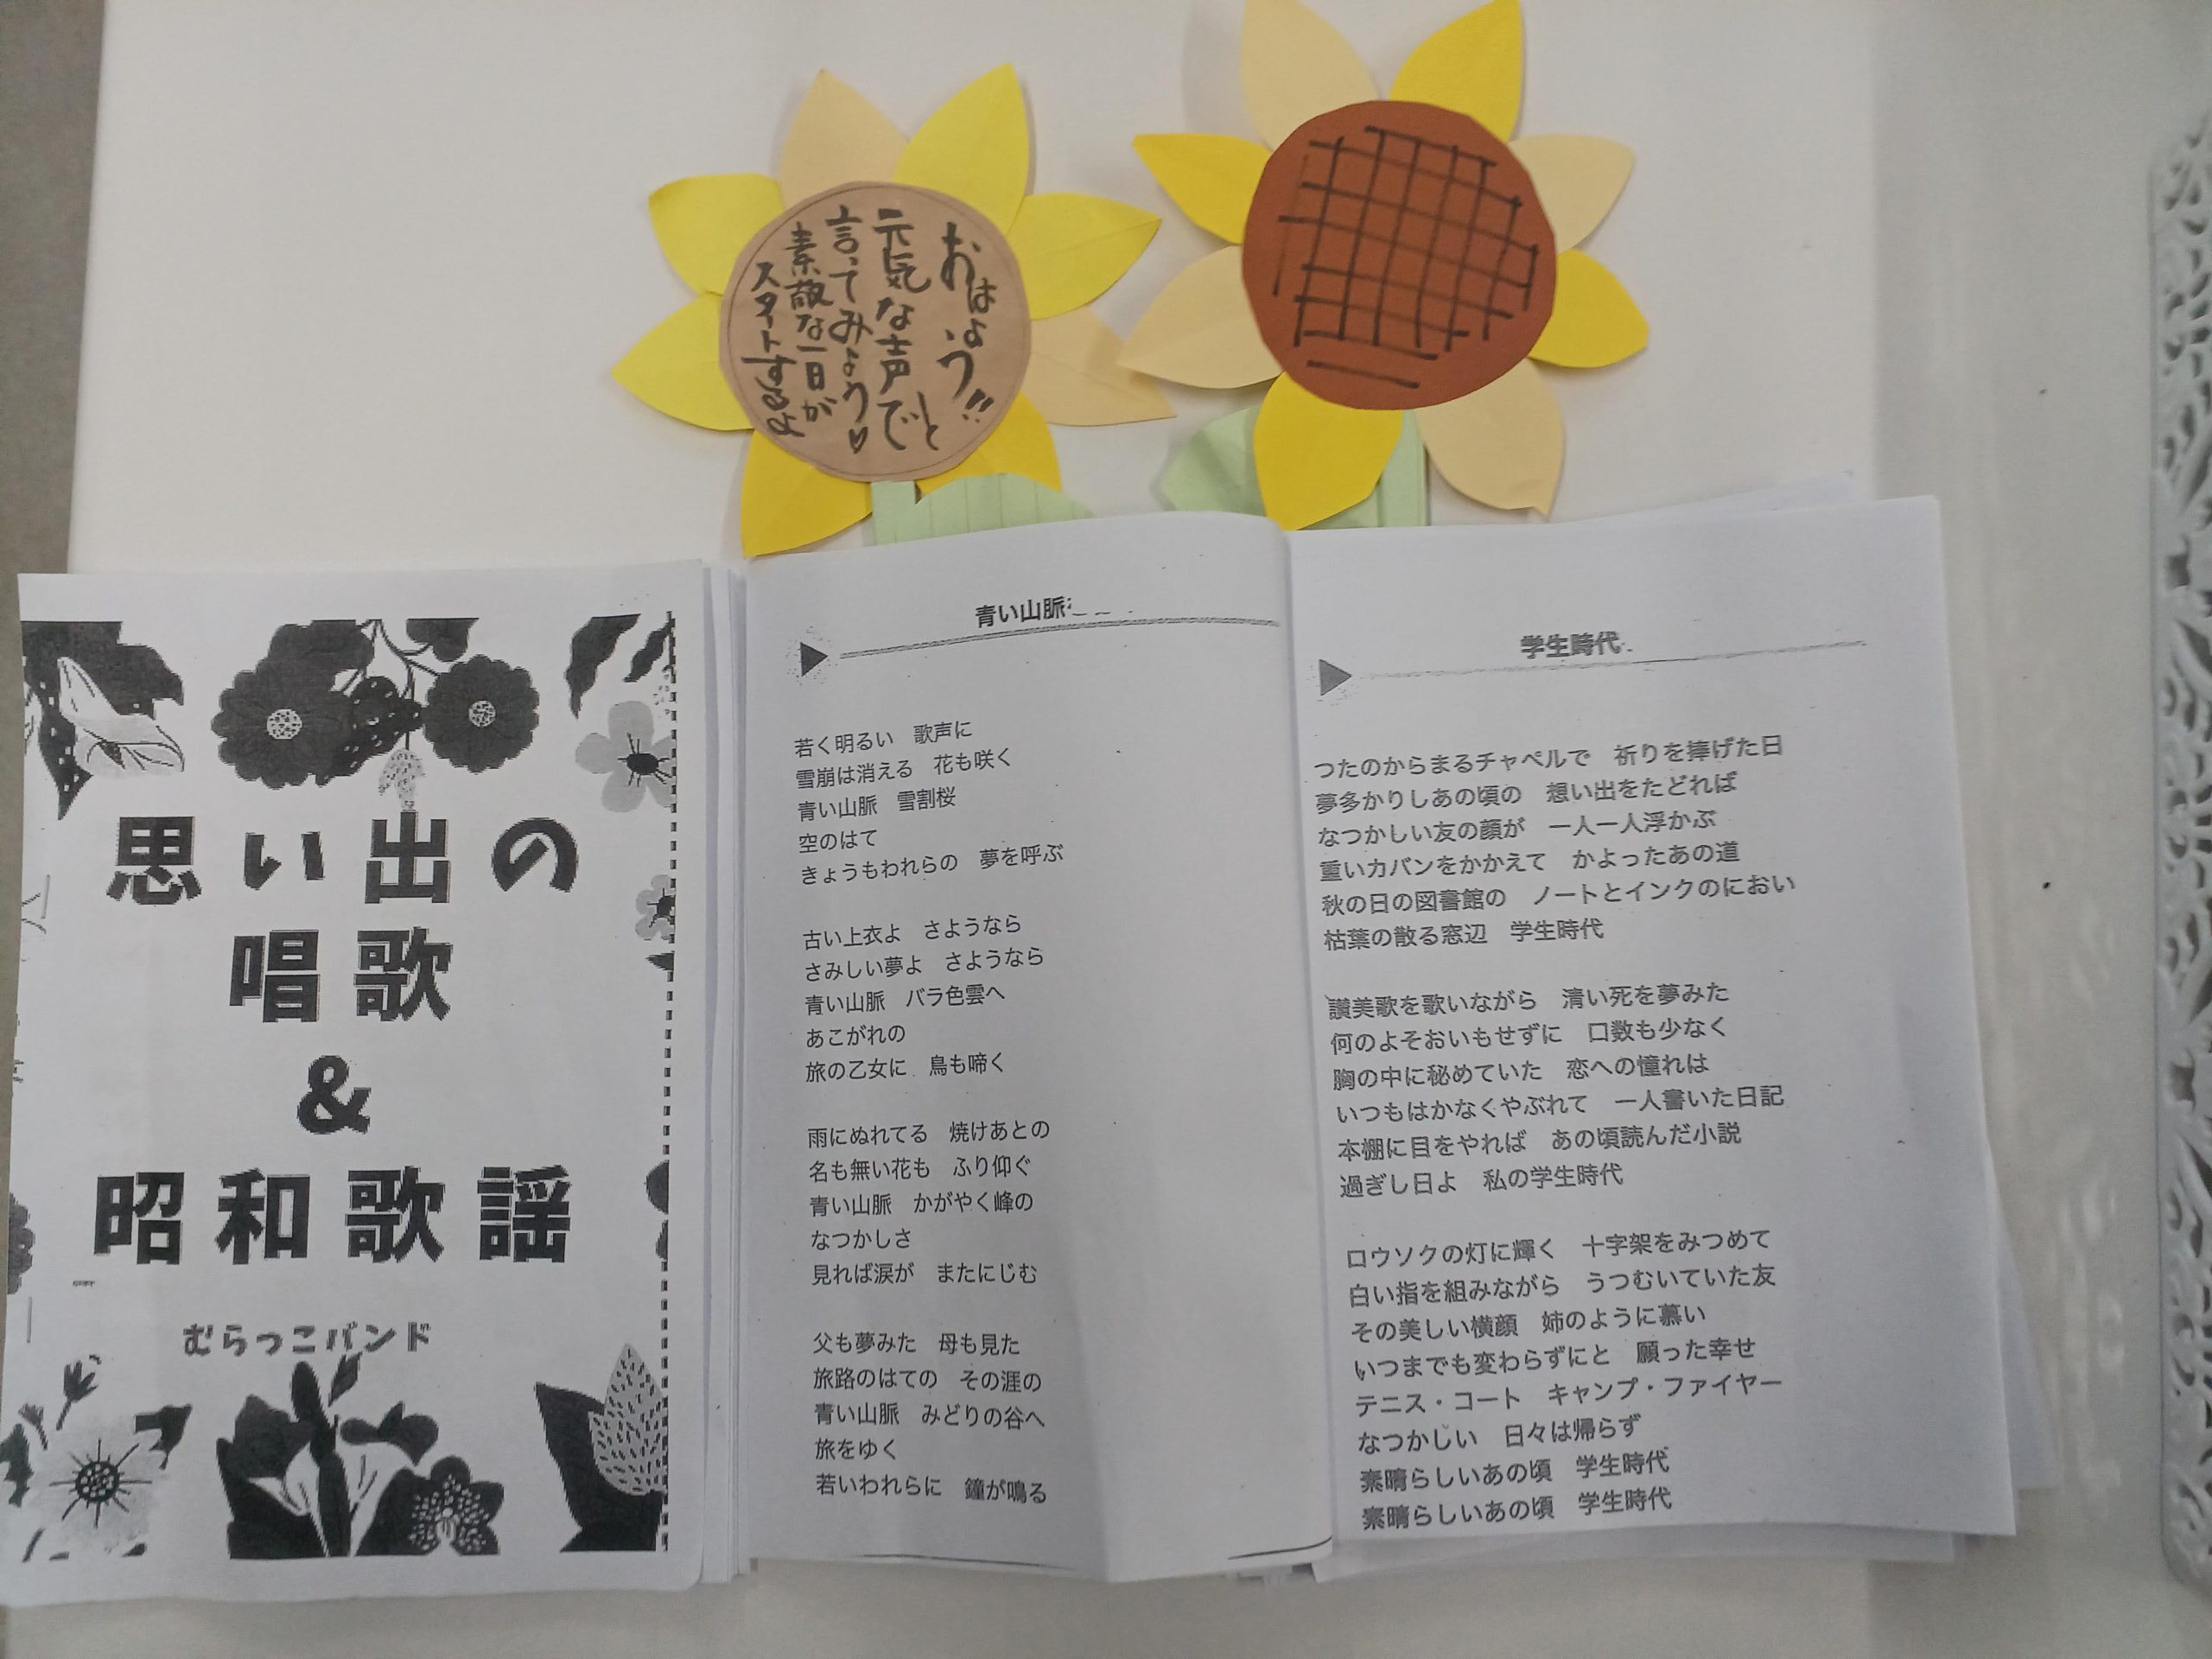 おはよう!!と
元気な声で
言ってみよう♡
素敵な一日が
スタートするよ
思い出の
唱歌
&
昭和歌謡
むらっこバンド
青い山脈
若く明るい　歌声に
雪崩は消える　花も咲く
青い山脈　雪割桜
空のはて
きょうもわれらの　夢を呼ぶ
古い上衣よ　さようなら
さみしい夢よ　さようなら
青い山脈　バラ色雲へ
あこがれの
旅の乙女に　鳥も啼く
雨にぬれてる　焼けあとの
名も無い花も　ふり仰ぐ
青い山脈　かがやく峰の
なつかしさ
見れば涙が　またにじむ
父も夢みた　母も見た
旅路のはての　その涯の
青い山脈　みどりの谷へ
旅をゆく
若いわれらに　鐘が鳴る
学生時代
つたのからまるチャペルで　祈りを捧げた日
夢多かりしあの頃の　想い出をたどれば
なつかしい友の顔が　一人一人浮かぶ
重いカバンをかかえて　かよったあの道
秋の日の図書館の　ノートとインクのにおい
枯葉の散る窓辺　学生時代
讃美歌を歌いながら　清い死を夢みた
何のよそおいもせずに　口数も少なく
胸の中に秘めていた　恋への憧れは
いつもはかなくやぶれて　一人書いた日記
本棚に目をやれば　あの頃読んだ小説
過ぎし日よ　私の学生時代
ロウソクの灯に輝く　十字架をみつめて
白い指を組みながら　うつむいていた友
その美しい横顔　姉のように慕い
いつまでも変わらずにと　願った幸せ
テニス・コート　キャンプ・ファイヤー
なつかしい　日々は帰らず
素晴らしいあの頃　学生時代
素晴らしいあの頃　学生時代